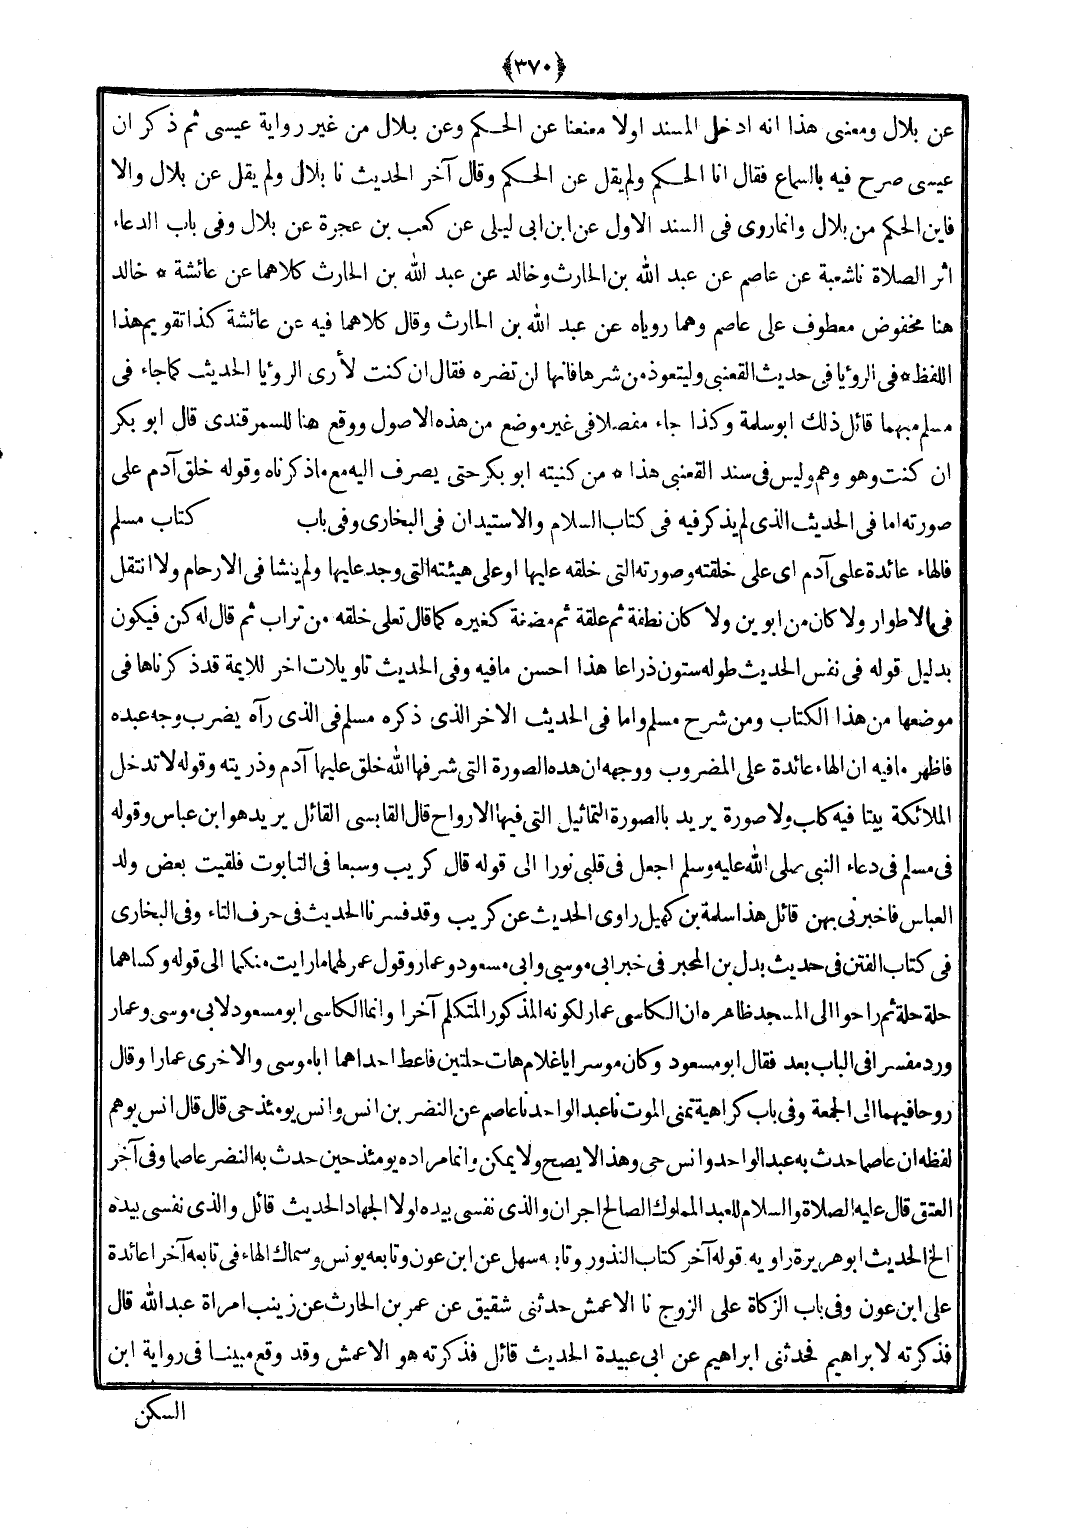 ﴿٣٧٠﴾
عن بلال ومعنى هذا انه ادخل المسند اولا معنعنا عن الحكم وعن بلال من غير رواية عيسى ثم ذكر ان
عيسى صرح فيه بالسماع فقال انا الحكم ولم يقل عن الحكم وقال آخر الحديث نا بلال ولم يقل عن بلال والا
فاين الحكم من بلال وانما روى فى السند الاول عن ابن ابى ليلى عن كعب بن عجرة عن بلال وفى باب الدعاء
اثر الصلاة نا شعبة عن عاصم عن عبد الله بن الحارث وخالد عن عبد الله بن الحارث كلاهما عن عائشة * خالد
هنا مخفوض معطوف على عاصم وهما روياه عن عبد الله بن الحارث وقال كلاهما فيه عن عائشة كذا تقويم هذا
اللفظ * فى الرؤيا فى حديث القعنبى وليتعوذ من شرها فانها لن تضره فقال ان كنت لأرى الرؤيا الحديث كما جاء فى
مسلم مبهما قائل ذلك ابو سلمة وكذا جاء مفصلا فى غير موضع من هذه الاصول ووقع هنا للسمرقندى قال ابو بكر
ان كنت وهو وهم وليس فى سند القعنبى هذا * من كنيته ابو بكر حتى يصرف اليه مع ما ذكرناه وقوله خلق آدم على
صورته اما فى الحديث الذى لم يذكر فيه فى كتاب السلام والاستيدان فى البخارى وفى باب كتاب مسلم
فالهاء عائدة على آدم اى على خلقته وصورته التى خلقه عليها او على هيئته التى وجد عليها ولم ينشا فى الارحام ولا انتقل
فى الاطوار ولا كان من ابوين ولا كان نطفة ثم علقة ثم مضغة كغيره كما قال تعلى خلقه من تراب ثم قال له كن فيكون
بدليل قوله فى نفس الحديث طوله ستون ذراعا هذا احسن ما فيه وفى الحديث تاويلات اخر للايمة قد ذكرناها فى
موضعها من هذا الكتاب ومن شرح مسلم واما فى الحديث الاخر الذى ذكره مسلم فى الذى رآه يضرب وجه عبده
فاظهر ما فيه ان الهاء عائدة على المضروب ووجهه ان هذه الصورة التى شرفها الله خلق عليها آدم وذريته وقوله لا تدخل
الملائكة بيتا فيه كلب ولا صورة يريد بالصورة التماثيل التى فيها الارواح قال القابسى القائل يريد هو ابن عباس وقوله
فى مسلم فى دعاء النبى صلى الله عليه وسلم اجعل فى قلبى نورا الى قوله قال كريب وسبعا فى التابوت فلقيت بعض ولد
العباس فاخبرنى بهن قائل هذا سلمة بن كهيل راوى الحديث عن كريب وقد فسرنا الحديث فى حرف التاء وفى البخارى
فى كتاب الفتن فى حديث بدل بن المحبر فى خبر ابى موسى وابى مسعود وعمار وقول عمر لهما ما رايت منكما الى قوله وكساهما
حلة حلة ثم راحوا الى المسجد ظاهره ان الكاسى عمار لكونه المذكور المتكلم آخرا وانما الكاسى ابو مسعود لابى موسى وعمار
ورد مفسرا فى الباب بعد فقال ابو مسعود وكان موسرا يا غلام هات حلتين فاعط احداهما ابا موسى والاخرى عمارا وقال
روحا فيهما الى الجمعة وفى باب كراهية تمنى الموت نا عبد الواحد نا عاصم عن النضر بن انس وانس يومئذ حى قال قال انس يوهم
لفظه ان عاصما حدث به عبد الواحد وانس حى وهذا لا يصح ولا يمكن وانما مراده يومئذ حين حدث به النضر عاصما وفى آخر
العتق قال عليه الصلاة والسلام للعبد المملوك الصالح اجران والذى نفسى بيده لولا الجهاد الحديث قائل والذى نفسى بيده
الخ الحديث ابو هريرة راويه قوله آخر كتاب النذور وتابعه سهل عن ابن عون وتابعه يونس وسماك الهاء فى تابعه آخرا عائدة
على ابن عون وفى باب الزكاة على الزوج نا الاعمش حدثنى شقيق عن عمر بن الحارث عن زينب امراة عبد الله قال
فذكرته لابراهيم فحدثنى ابراهيم عن ابى عبيدة الحديث قائل فذكرته هو الاعمش وقد وقع مبينا فى رواية ابن
السكن